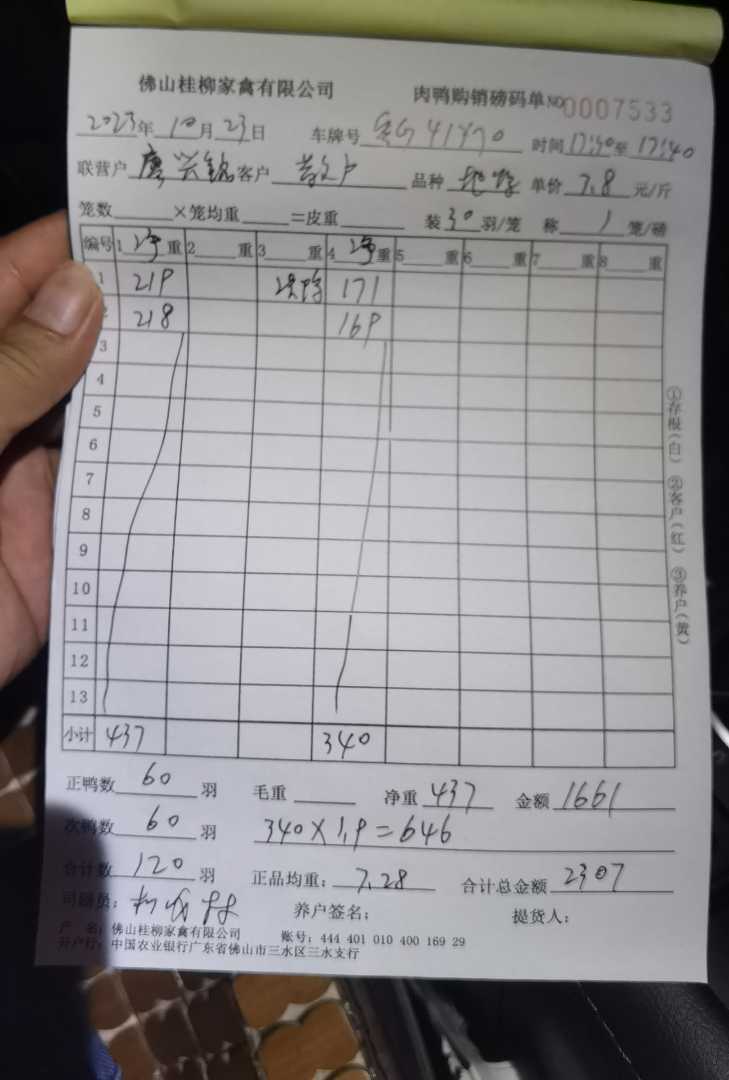 佛山桂柳家禽有限公司 肉鸭购销磅码单 NO 0007533
2023年 10月 23日 车牌号 时间 至 17:40
联营户 客户 散户 品种 单价 3.8 元/斤
笼数 ×笼均重 =皮重 装30羽/笼 称 1 笼/磅
编号 1 净重 2 重 3 重 4 净重 5 重 6 重 7 重 8 重
1 219 次鸭 171
2 218 169
3
4
5
6
7
8
9
10
11
12
13
小计 437 340
正鸭数 60 羽 毛重 净重 437 金额 1661
次鸭数 60 羽 340×1.9=646
合计数 120 羽 正品均重: 7.28 合计总金额 2307
司磅员: 养户签名: 提货人:
户 名: 佛山桂柳家禽有限公司 账号: 444 401 010 400 169 29
开户行: 中国农业银行广东省佛山市三水区三水支行
①存根(白) ②客户(红) ③养户(黄)